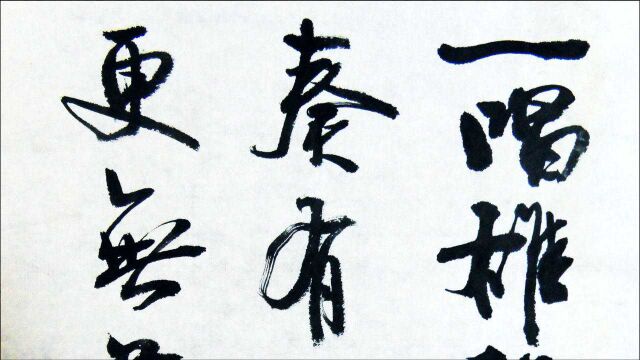 一唱雄
奏有
更無